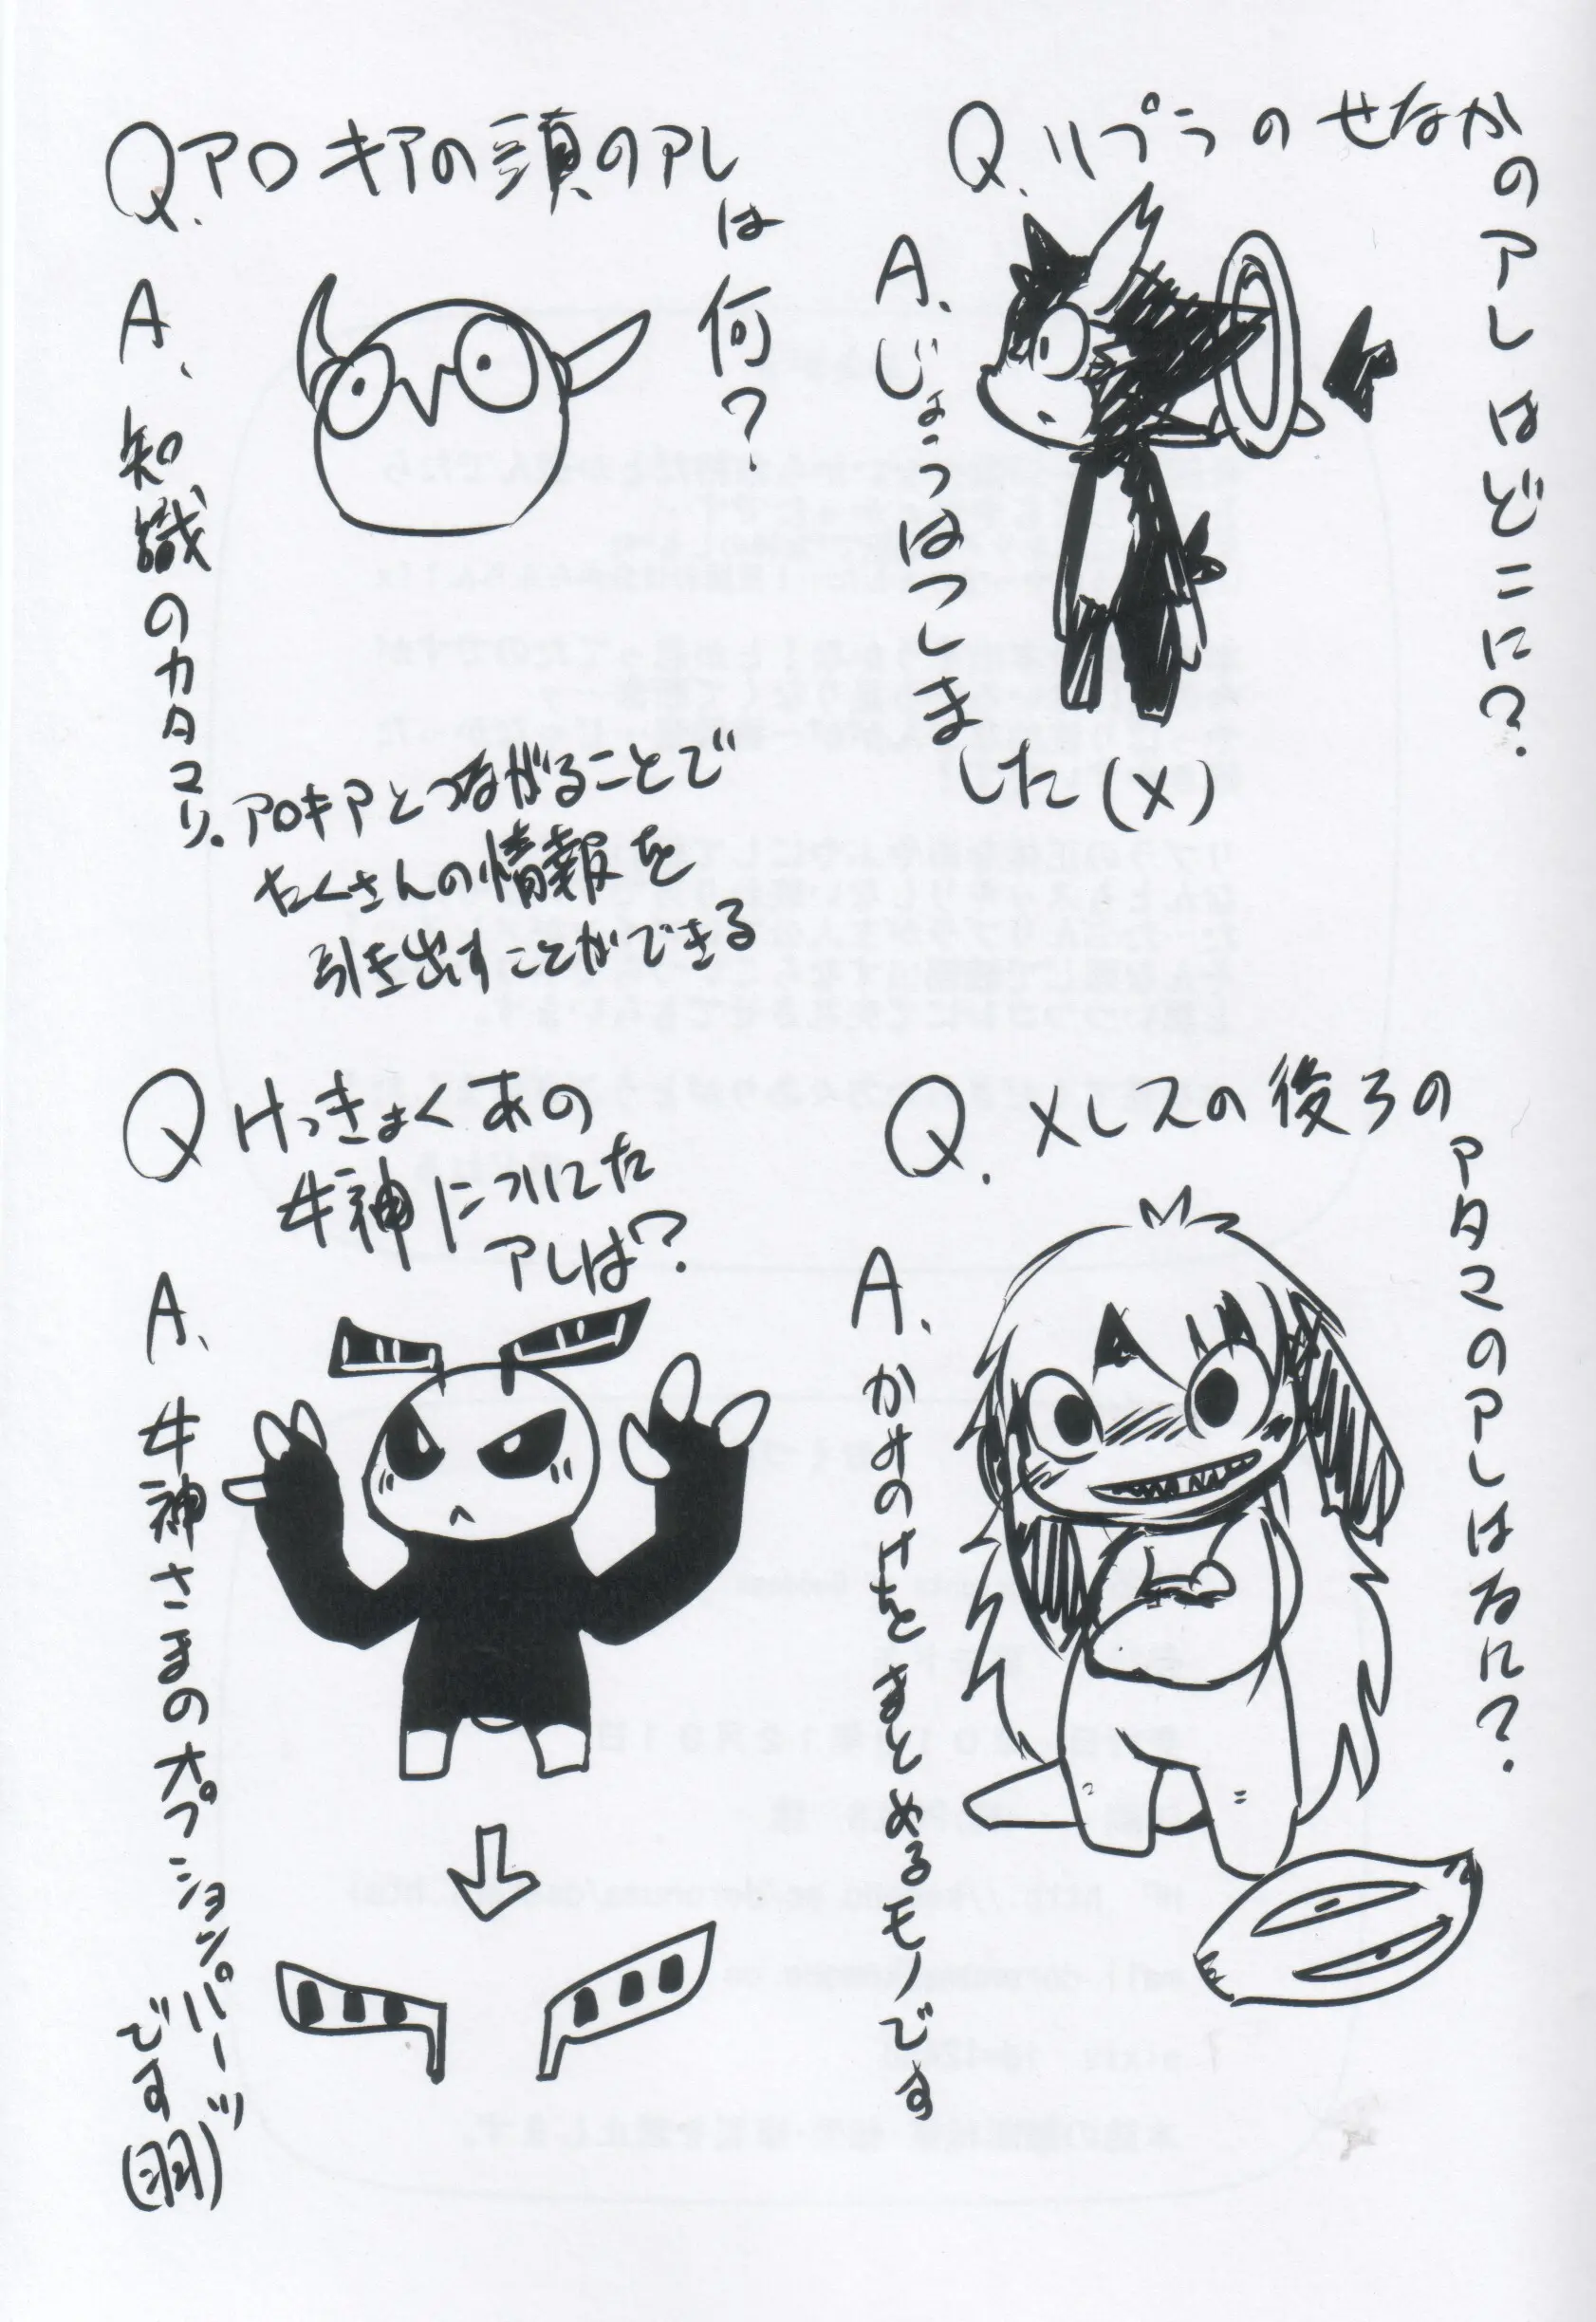 Q.リプラのせなか
のアレはどこに?
A.じょうはつしま
した(X)
Q.アロキアの頭のアレ
は何?
A.知識のカタマリ。
アロキアとつながることで
たくさんの情報を
引き出すことができる
Q.メレスの後ろの
アタマのアレはなに?
A.かみのけをまとめるモノです
Qけっきょくあの
女神についてた
アレは?
A.女神さまのオプションパーツ
です(羽)